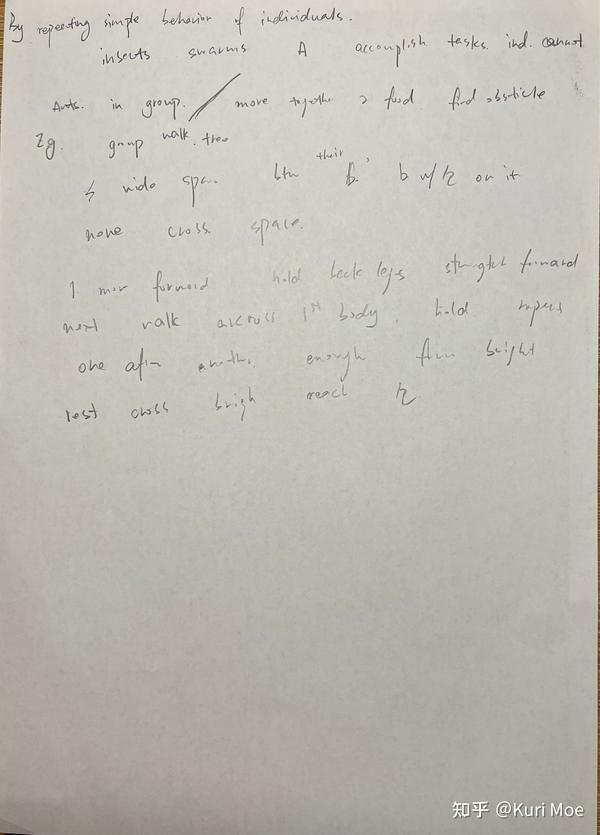 By repeating simple behavior of individuals.
insects swarms A accomplish tasks. ind. cannot
Ants. in group. / move together food find obsticle
Eg. group walk. tree
wide spa. btn their b. b w/ on it
none cross space.
1 mor forward hold back legs straight forward
next walk across 1st body. hold repeat
one after anoth. enough form bright
rest cross brigh reach
知乎 @Kuri Moe